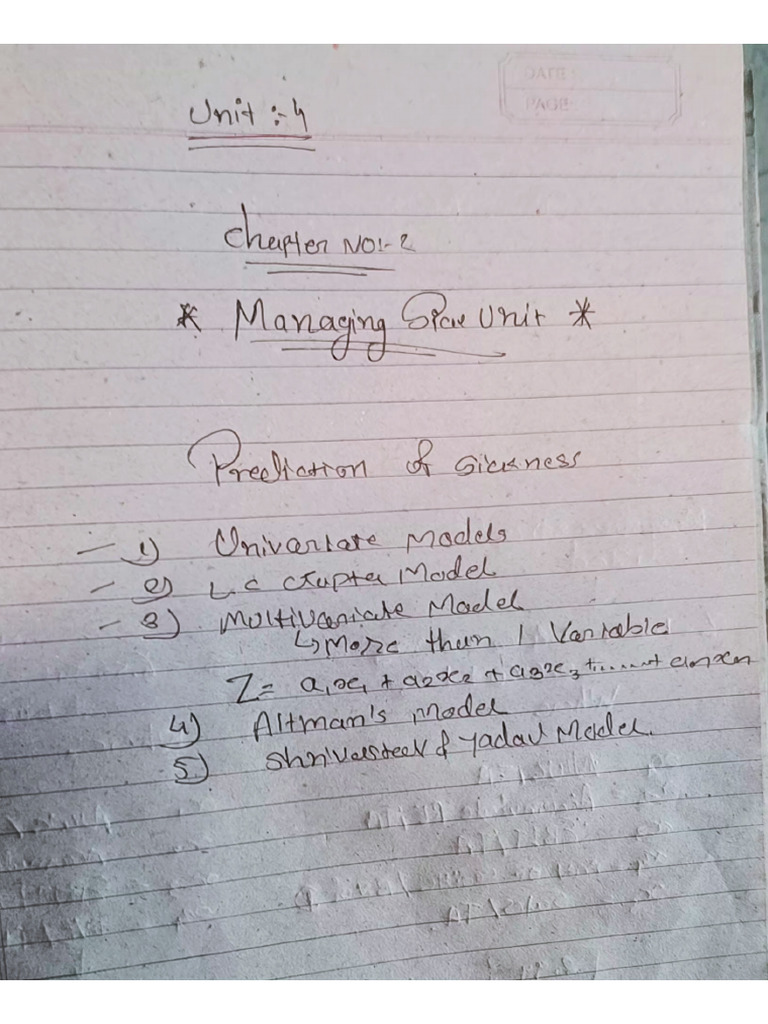 DATE:
PAGE:
Unit :- 4
Chapter NO:- 2
* Managing Sick Unit *
Prediction of sickness
- 1) Univariate Models
- 2) L.C Gupta Model
- 3) Multivariate Model
↳ More than 1 Variable
Z = a₁x₁ + a₂x₂ + a₃x₃ +......+ anxn
4) Altman's model
5) & Yadav Model.